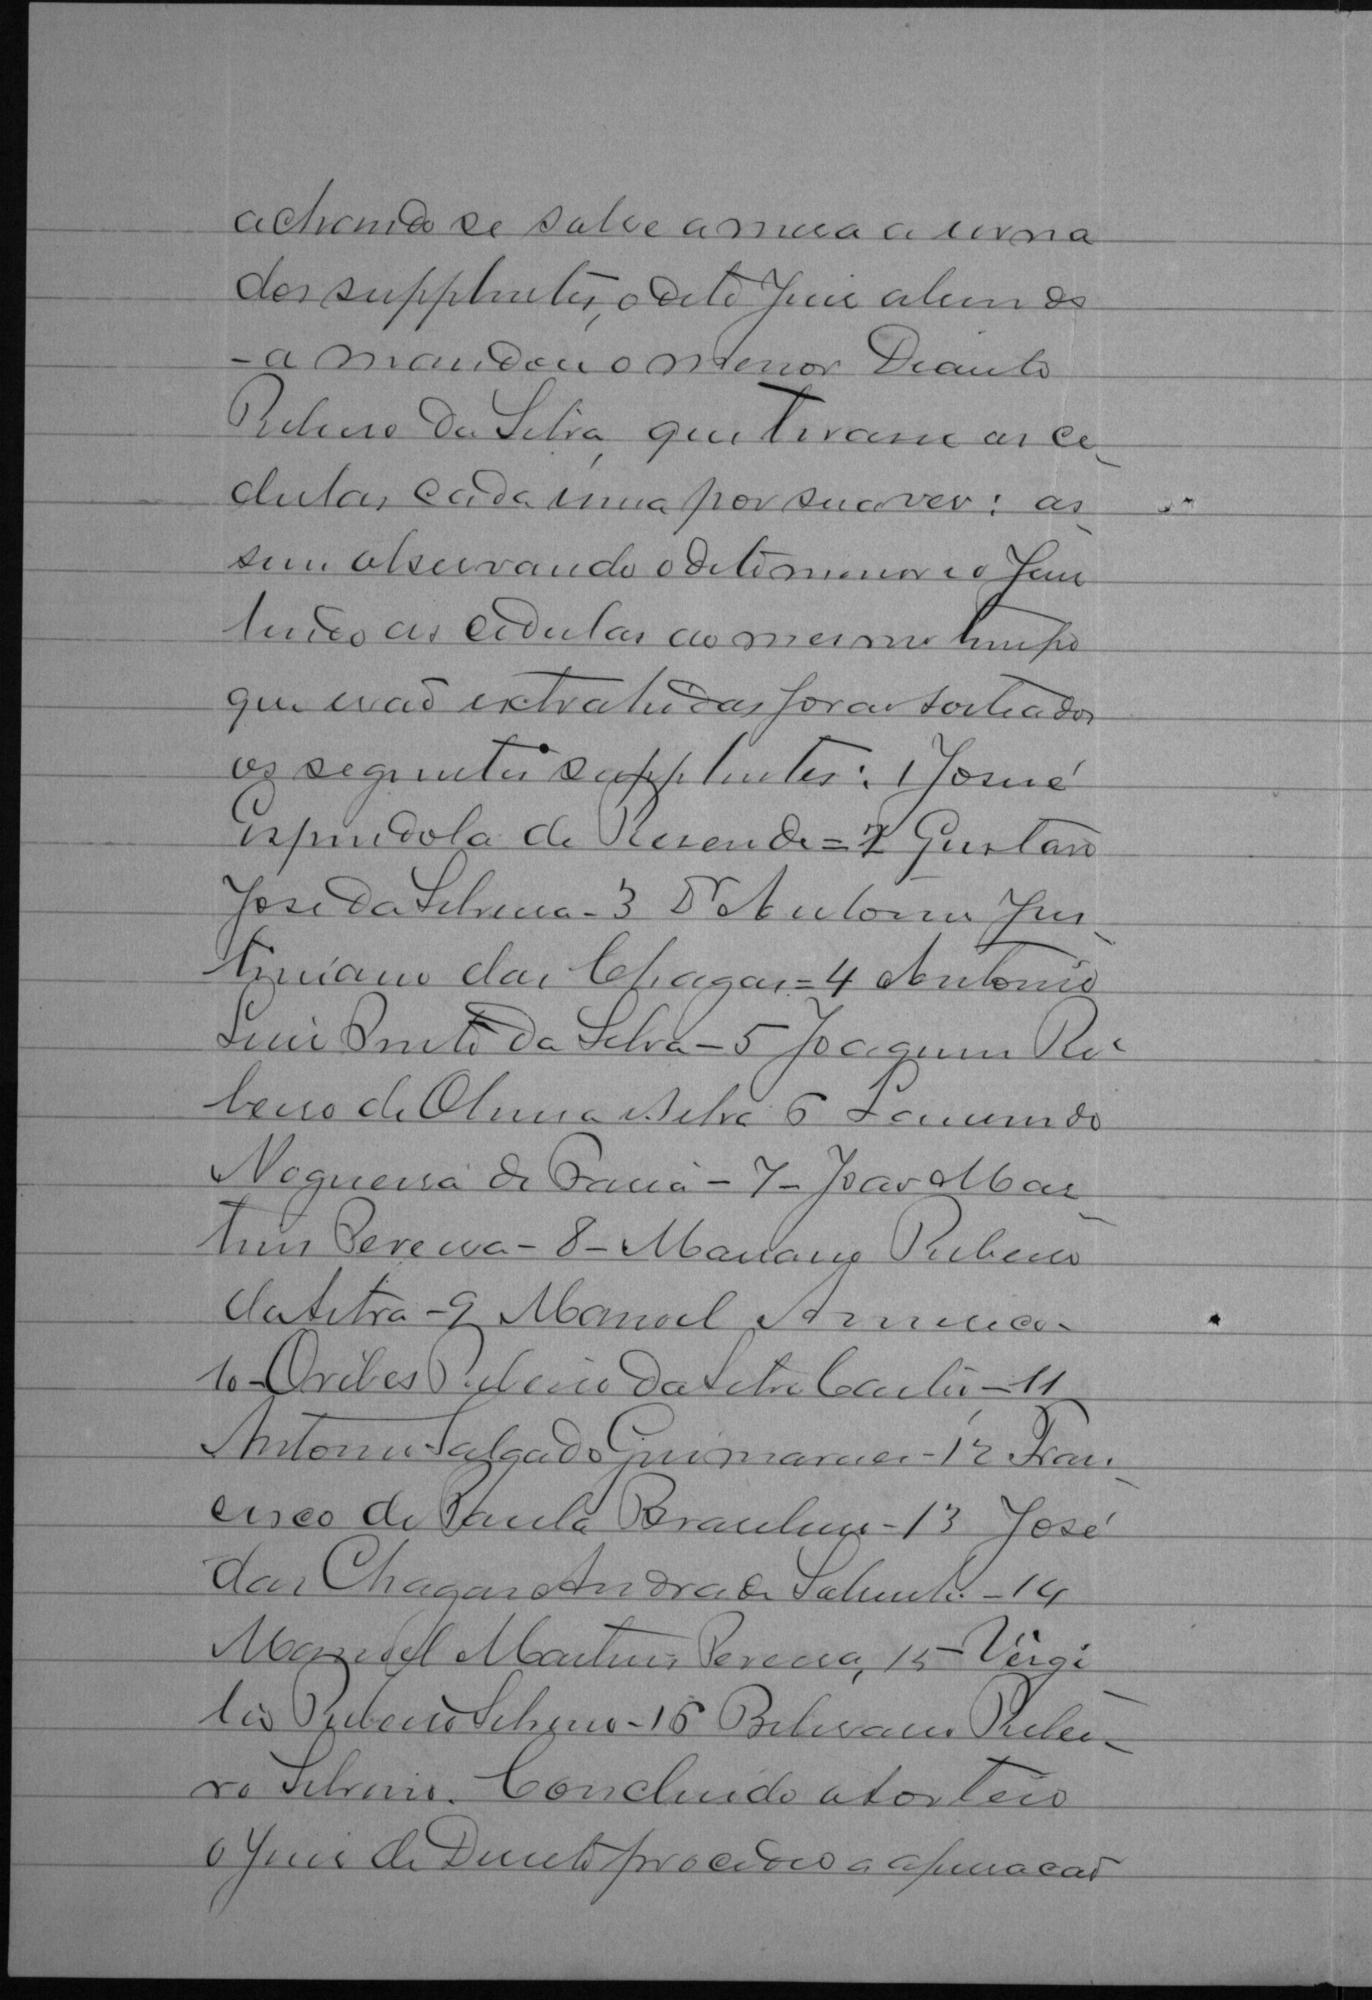 achando se sobre a mesa a urna
dos supplentes, o dito Juiz abrindo
-a mandou o menor
Ribeiro da Silva, que tirasse as ce-
dulas cada uma por sua vez: as-
sim observando o dito menor e o Juiz
lendo as cedulas ao mesmo tempo
que erão extrahidas forão sorteados
os seguintes supplentes: 1 Josué
Espindola de Resende = 2 Gustavo
José da Silveira - 3 Dr Antonio Jus-
tiniano das Chagas = 4 Antonio
Luiz Pinto da Silva - 5 Joaquim Ri-
beiro de Oliveira e Silva 6
Nogueira de Faria - 7 - João Mar-
tins Pereira - 8 - Mariano Ribeiro
da Silva - 9 Manoel Americo -
10 - Oribes Ribeiro da Silva - 11
Antonio Salgado Guimarães - 12 Fran-
cisco de Paula Brandão - 13 José
das Chagas Andrade Sobrinho - 14
Manoel Martins Pereira, 15 - Virgi-
lio Ribeiro Silverio - 16 Belisario Ribei-
ro Silverio. Concluido o sorteio
o Juiz de Direito procedeo a apuração